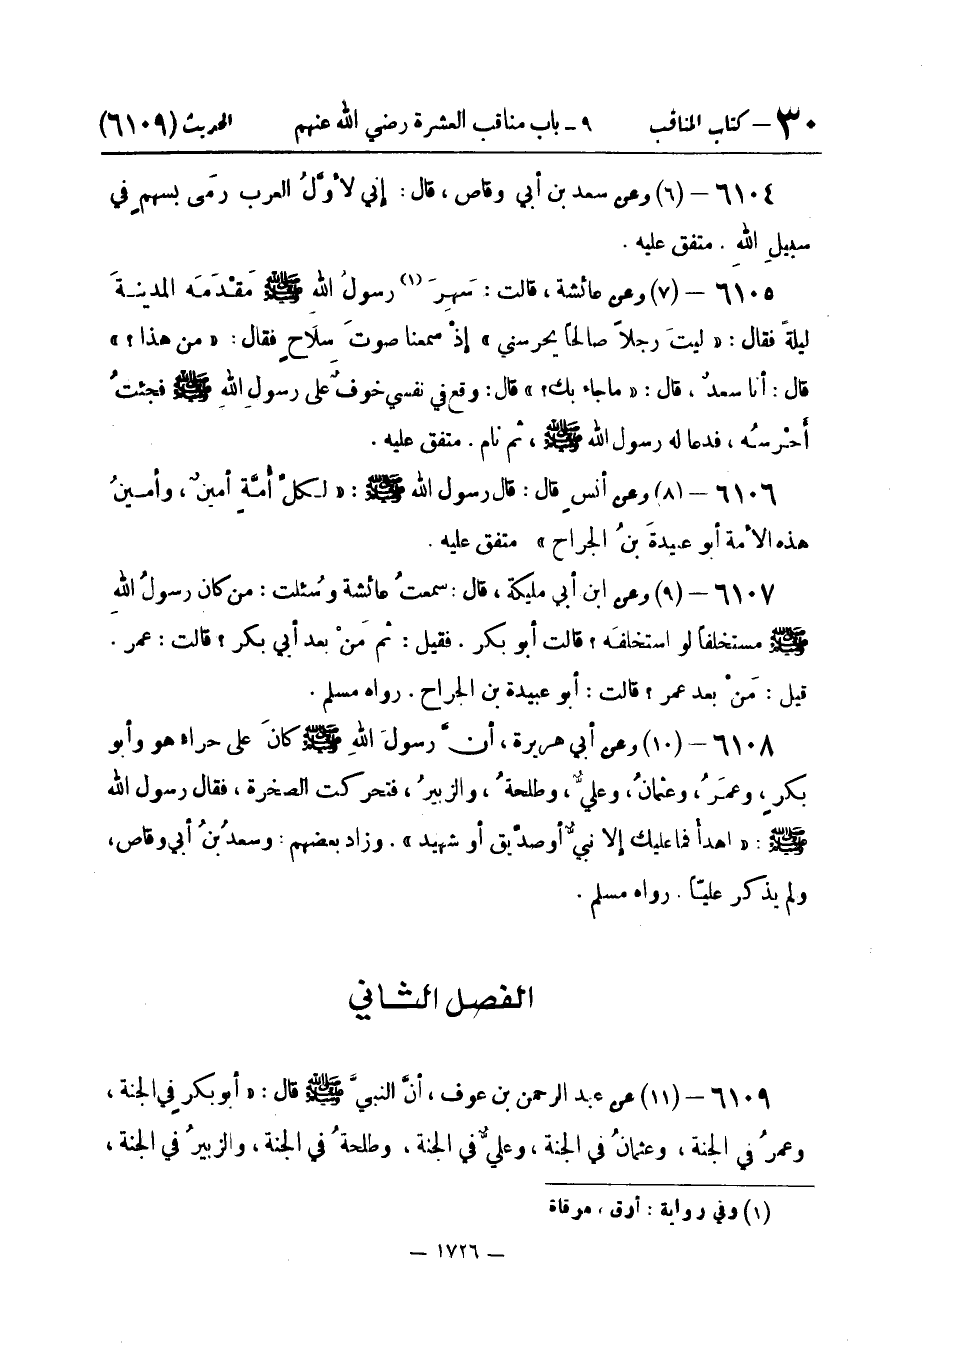 ٣٠ – كتاب المناقب ٩ - باب مناقب العشرة رضي الله عنهم الحديث (٦١٠٩)
٦١٠٤ – (٦) وعن سعد بن أبي وقاص ، قال : إني لأوَّلُ العرب رمَى بسهمٍ في
سبيلِ اللهِ . متفق عليه .
٦١٠٥ – (٧) وعن عائشة ، قالت : سَهِرَ (١) رسولُ اللهِ ﷺ مَقْدَمَه المدينةَ
ليلةً فقال : « ليتَ رجلاً صالحاً يحرسني » إذْ سمعنا صوتَ سِلاحٍ فقال : « من هذا ؟ »
قال : أنا سعدٌ ، قال : « ماجاء بك؟ » قال : وقع في نفسي خوفٌ على رسولِ اللهِ ﷺ فجئتُ
أحْرسُه ، فدعا له رسول الله ﷺ ، ثم نام . متفق عليه .
٦١٠٦ – (٨) وعن أنسٍ قال : قال رسول الله ﷺ : « لكلِّ أُمَّةٍ أمينٌ ، وأمينُ
هذه الأمة أبو عبيدةَ بنُ الجراح » متفق عليه .
٦١٠٧ – (٩) وعن ابن أبي مليكة ، قال : سمعتُ عائشة وسُئلت : من كان رسولُ اللهِ
ﷺ مستخلفاً لو استخلفَه ؟ قالت أبو بكر . فقيل : ثم مَنْ بعد أبي بكر ؟ قالت : عمر .
قيل : مَنْ بعد عمر ؟ قالت : أبو عبيدة بن الجراح . رواه مسلم .
٦١٠٨ – (١٠) وعن أبي هريرة ، أنَّ رسولَ اللهِ ﷺ كانَ على حراء هو وأبو
بكرٍ ، وعمَرُ ، وعثمانُ ، وعليٌّ ، وطلحةُ ، والزبيرُ ، فتحركت الصخرة ، فقال رسول الله
ﷺ : « اهدأ فما عليك إلا نبيٌّ أو صدِّيق أو شهيد » . وزاد بعضهم : وسعدُ بنُ أبي وقاص ،
ولم يذكر عليّاً . رواه مسلم .
الفصل الثاني
٦١٠٩ – (١١) عن عبد الرحمن بن عوف ، أنَّ النبيَّ ﷺ قال : « أبو بكرٍ في الجنة ،
وعمرُ في الجنة ، وعثمانُ في الجنة ، وعليٌّ في الجنة ، وطلحةُ في الجنة ، والزبيرُ في الجنة ،
(١) وفي رواية : أرق ، مرقاة
– ١٧٢٦ –